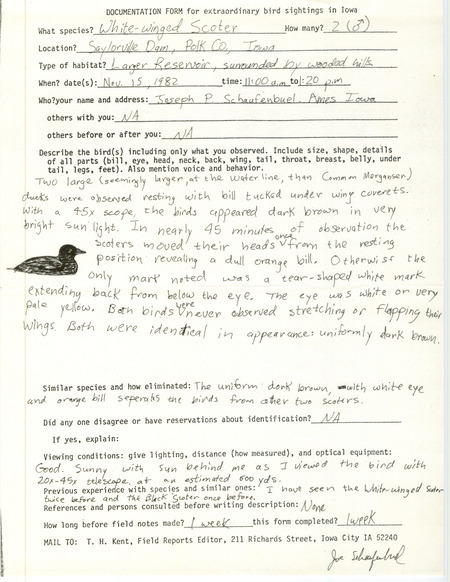 DOCUMENTATION FORM for extraordinary bird sightings in Iowa
What species? White-winged Scoter How many? 2 (♂)
Location? Saylorville Dam, Polk Co, Iowa
Type of habitat? Larger Reservoir, surrounded by wooded hills
When? date(s): Nov. 15, 1982 time: 11:00 a.m to 1:20 p.m
Who? your name and address: Joseph P. Schaufenbuel. Ames Iowa
others with you: NA
others before or after you: NA
Describe the bird(s) including only what you observed. Include size, shape, details
of all parts (bill, eye, head, neck, back, wing, tail, throat, breast, belly, under
tail, legs, feet). Also mention voice and behavior.
Two large (seemingly larger, at the waterline, than Common Merganser)
ducks were observed resting with bill tucked under wing coverets.
With a 45x scope, the birds appeared dark brown in very
bright sun light. In nearly 45 minutes of observation the
scoters moved their heads once from the resting
position revealing a dull orange bill. Otherwise the
only mark noted was a tear-shaped white mark
extending back from below the eye. The eye was white or very
pale yellow. Both birds were never observed stretching or flapping their
wings. Both were identical in appearance: uniformly dark brown.
Similar species and how eliminated: The uniform dark brown, with white eye
and orange bill seperates the birds from other two scoters.
Did any one disagree or have reservations about identification? NA
If yes, explain:
Viewing conditions: give lighting, distance (how measured), and optical equipment:
Good. Sunny with sun behind me as I viewed the bird with
20x-45x telescope, at an estimated 600 yds.
Previous experience with species and similar ones: I have seen the White-winged Scoter
twice before and the Black Scoter once before.
References and persons consulted before writing description: None
How long before field notes made? 1 week this form completed? 1 week
MAIL TO: T. H. Kent, Field Reports Editor, 211 Richards Street, Iowa City IA 52240
Joe Schaufenbuel